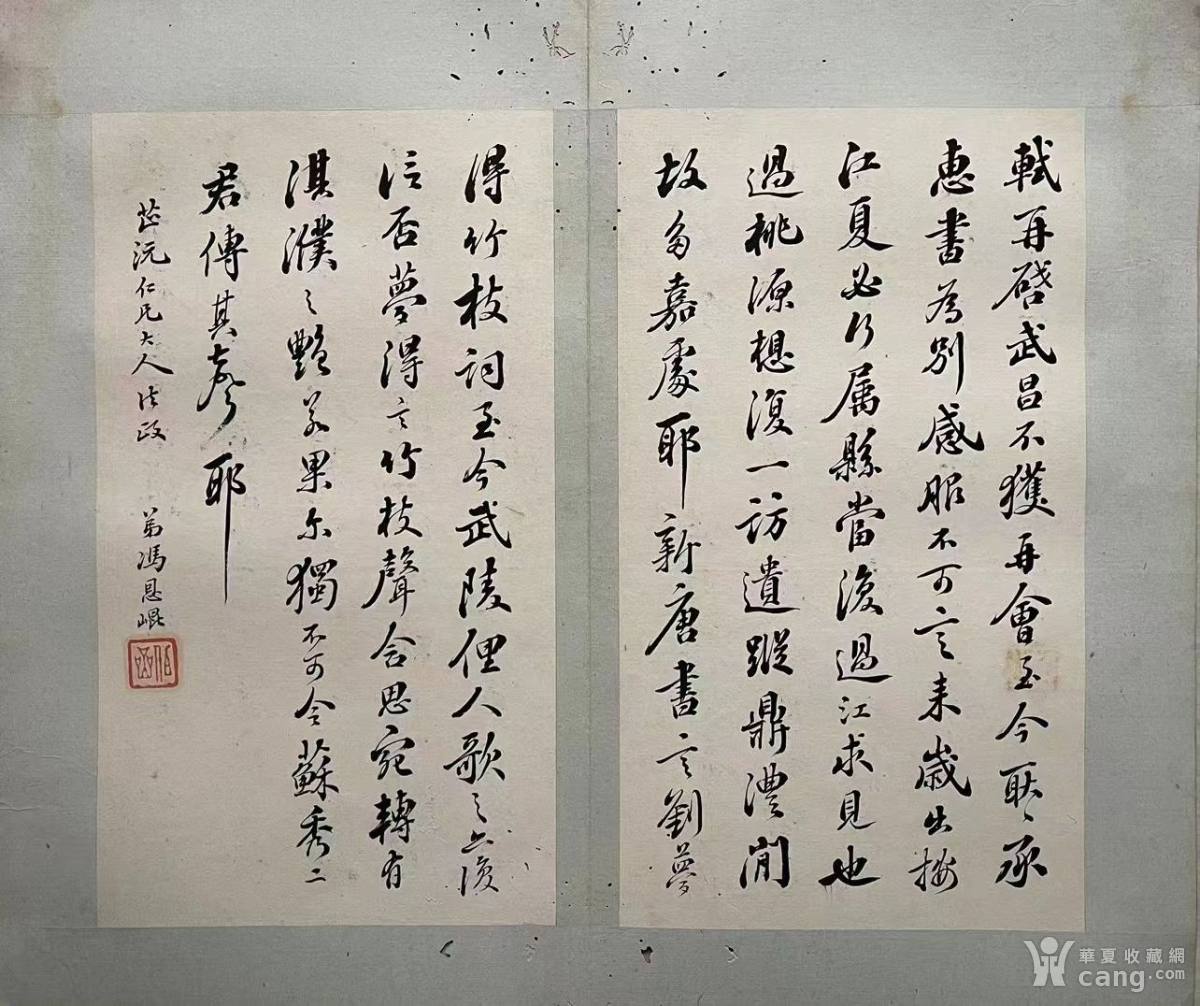 軾再啓武昌不獲再會至今耿耿承
惠書為別感服不可言来歲出按
江夏必行属縣當復過江求見也
過桃源想復一訪遺蹤鼎澧間
故多嘉處耶新唐書言劉夢
得竹枝詞至今武陵俚人歌之亦復
信否夢得言竹枝聲含思宛轉有
淇濮之艷若果尔獨不可令蘇秀二
君傳其聲耶
芷沅仁兄大人法政
弟馮恩崐
華夏收藏網
cang.com